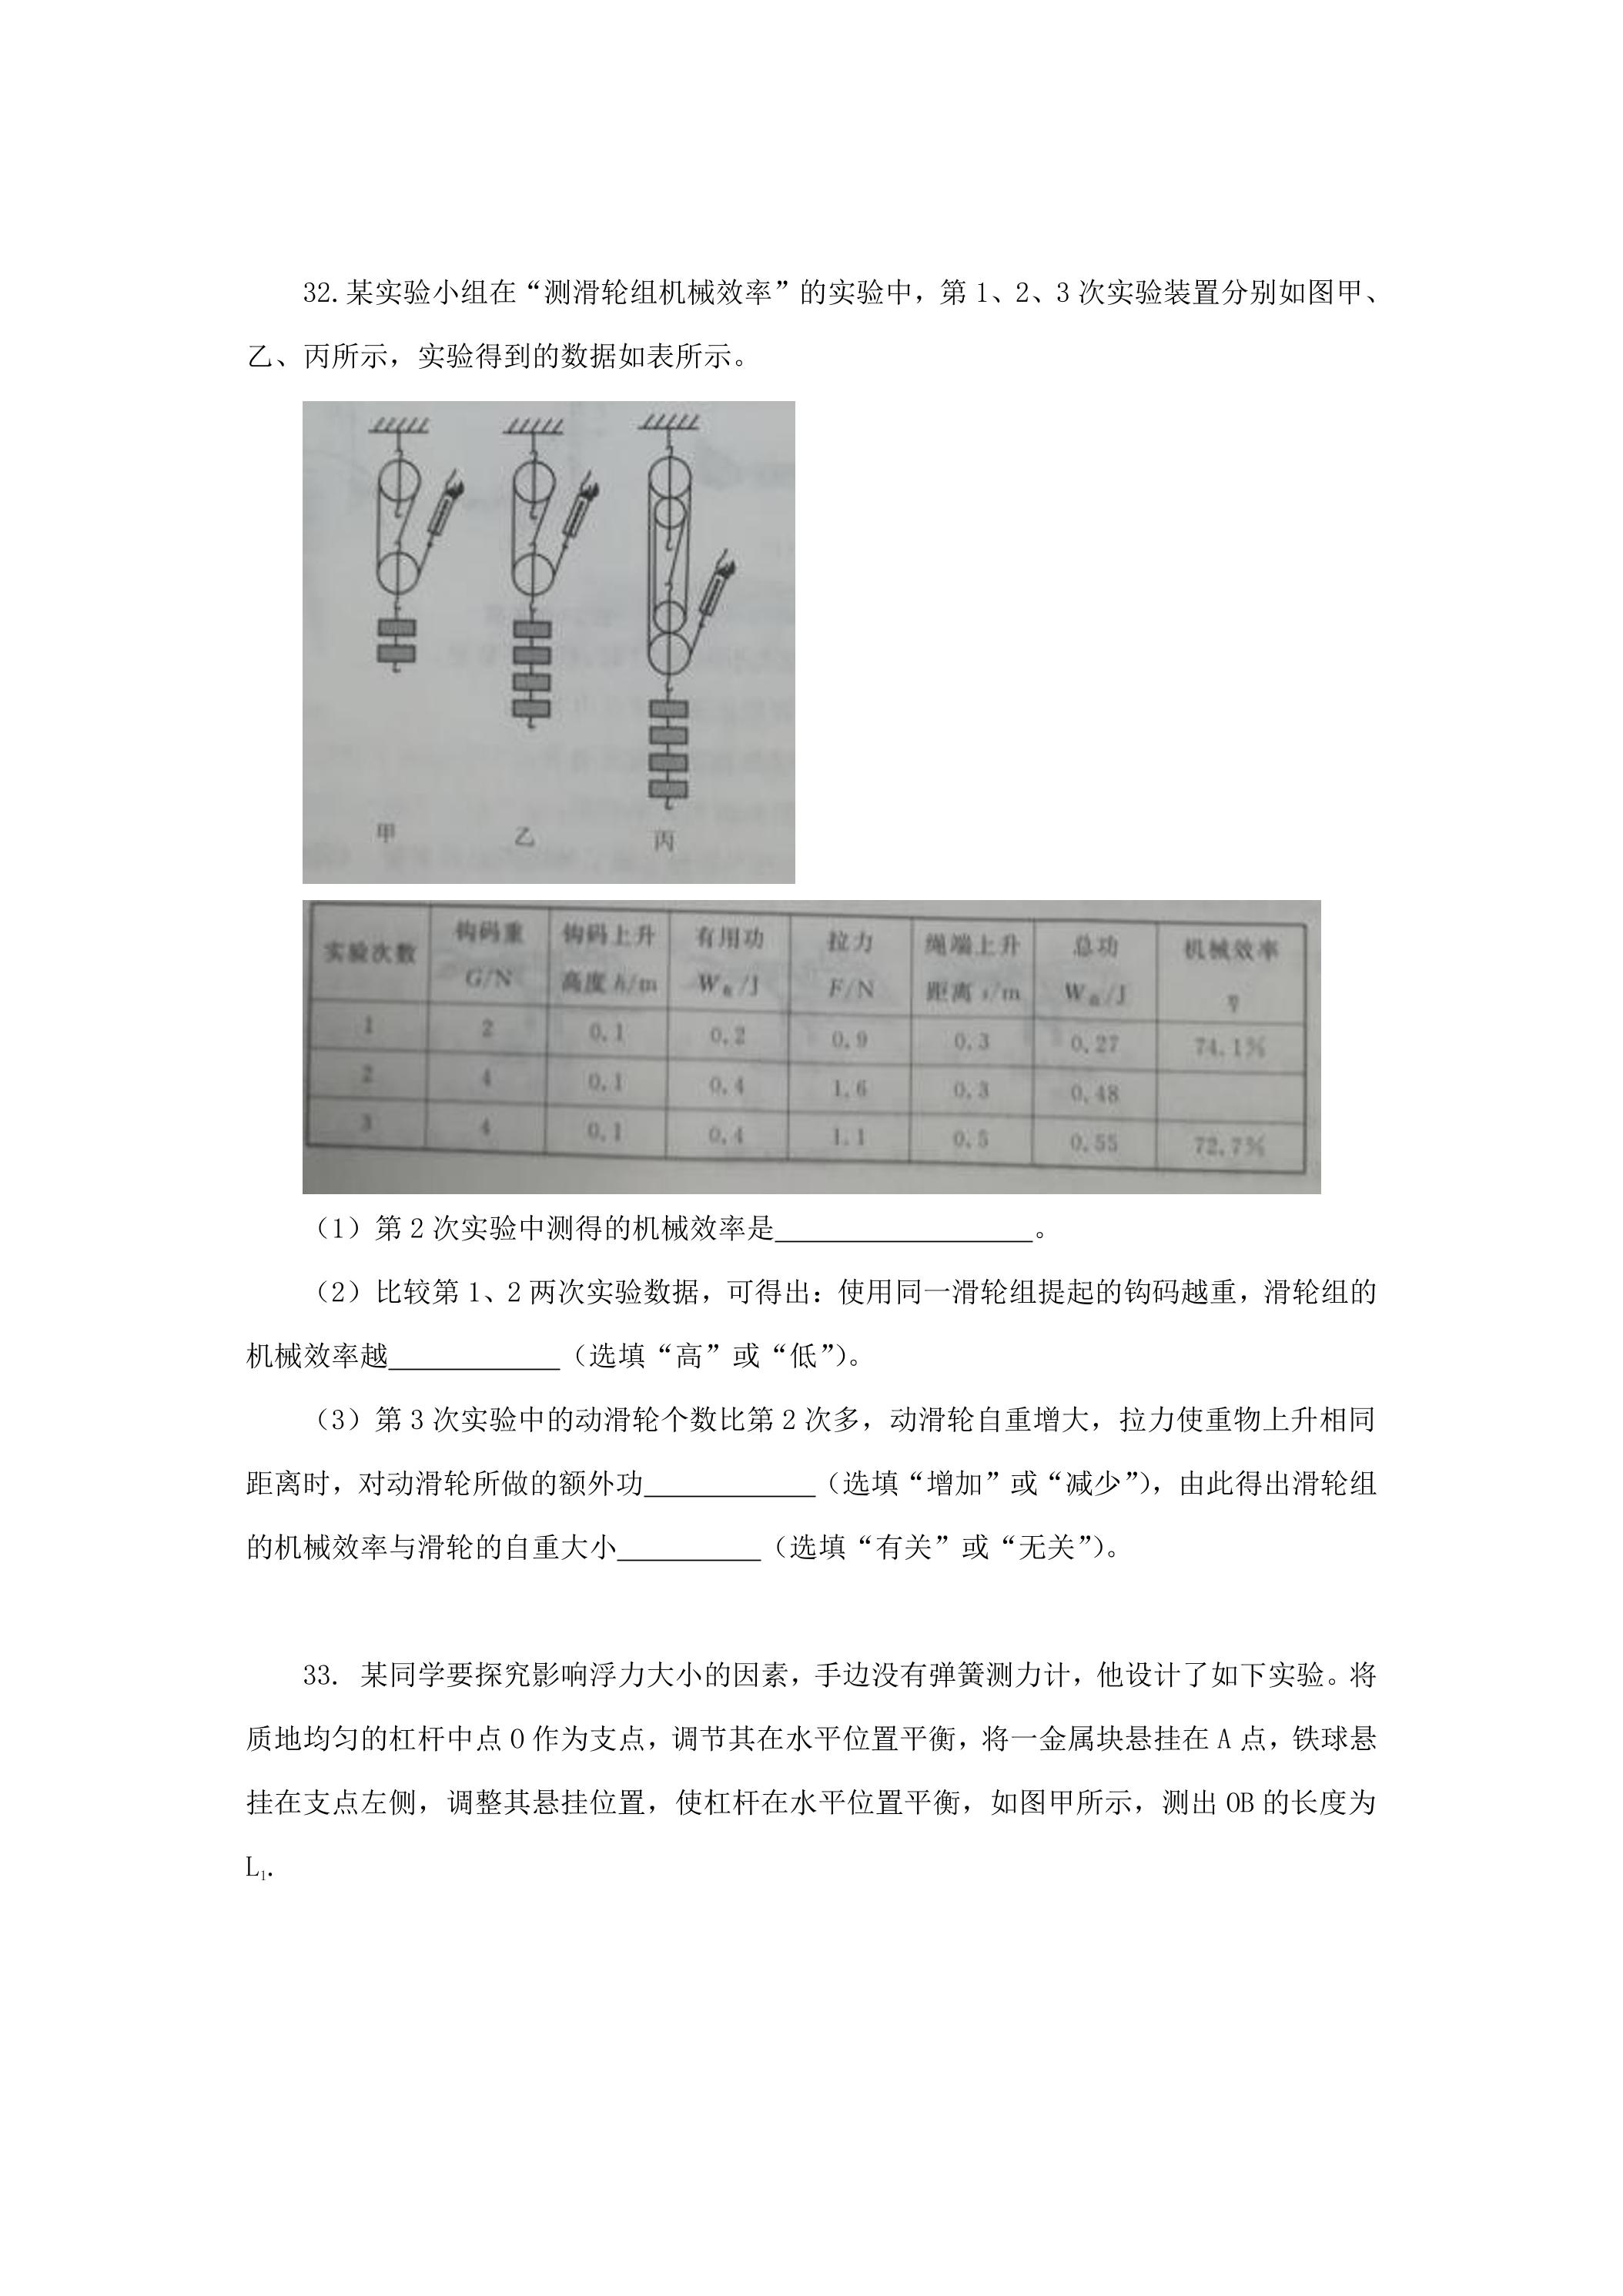 32.某实验小组在“测滑轮组机械效率”的实验中，第1、2、3次实验装置分别如图甲、
乙、丙所示，实验得到的数据如表所示。
甲 乙 丙
实验次数 钩码重 G/N 钩码上升高度 h/m 有用功 W有/J 拉力 F/N 绳端上升距离 s/m 总功 W总/J 机械效率 η
1 2 0.1 0.2 0.9 0.3 0.27 74.1%
2 4 0.1 0.4 1.6 0.3 0.48
3 4 0.1 0.4 1.1 0.5 0.55 72.7%
（1）第2次实验中测得的机械效率是__________________。
（2）比较第1、2两次实验数据，可得出：使用同一滑轮组提起的钩码越重，滑轮组的
机械效率越____________（选填“高”或“低”）。
（3）第3次实验中的动滑轮个数比第2次多，动滑轮自重增大，拉力使重物上升相同
距离时，对动滑轮所做的额外功____________（选填“增加”或“减少”），由此得出滑轮组
的机械效率与滑轮的自重大小__________（选填“有关”或“无关”）。
33. 某同学要探究影响浮力大小的因素，手边没有弹簧测力计，他设计了如下实验。将
质地均匀的杠杆中点O作为支点，调节其在水平位置平衡，将一金属块悬挂在A点，铁球悬
挂在支点左侧，调整其悬挂位置，使杠杆在水平位置平衡，如图甲所示，测出OB的长度为
L₁.